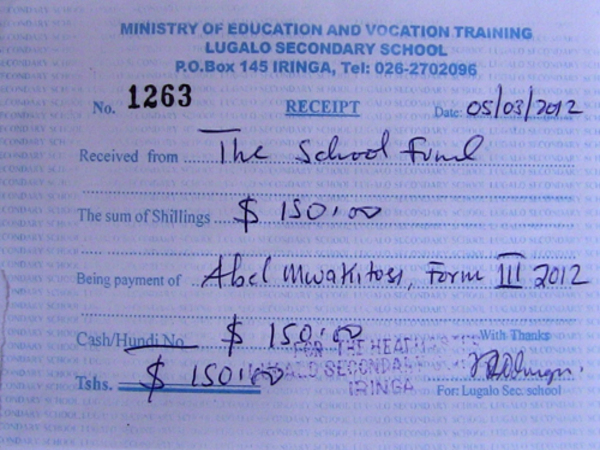 MINISTRY OF EDUCATION AND VOCATION TRAINING
LUGALO SECONDARY SCHOOL
P.O.Box 145 IRINGA, Tel: 026-2702096
No. 1263 RECEIPT Date: 05/03/2012
Received from The School Fund
The sum of Shillings $ 150.00
Being payment of Abel Mwakitosi, Form III 2012
Cash/Hundi No. $ 150.00 With Thanks
FOR THE HEADMASTER
Tshs. $ 150.00
LUGALO SECONDARY
IRINGA
For: Lugalo Sec. school